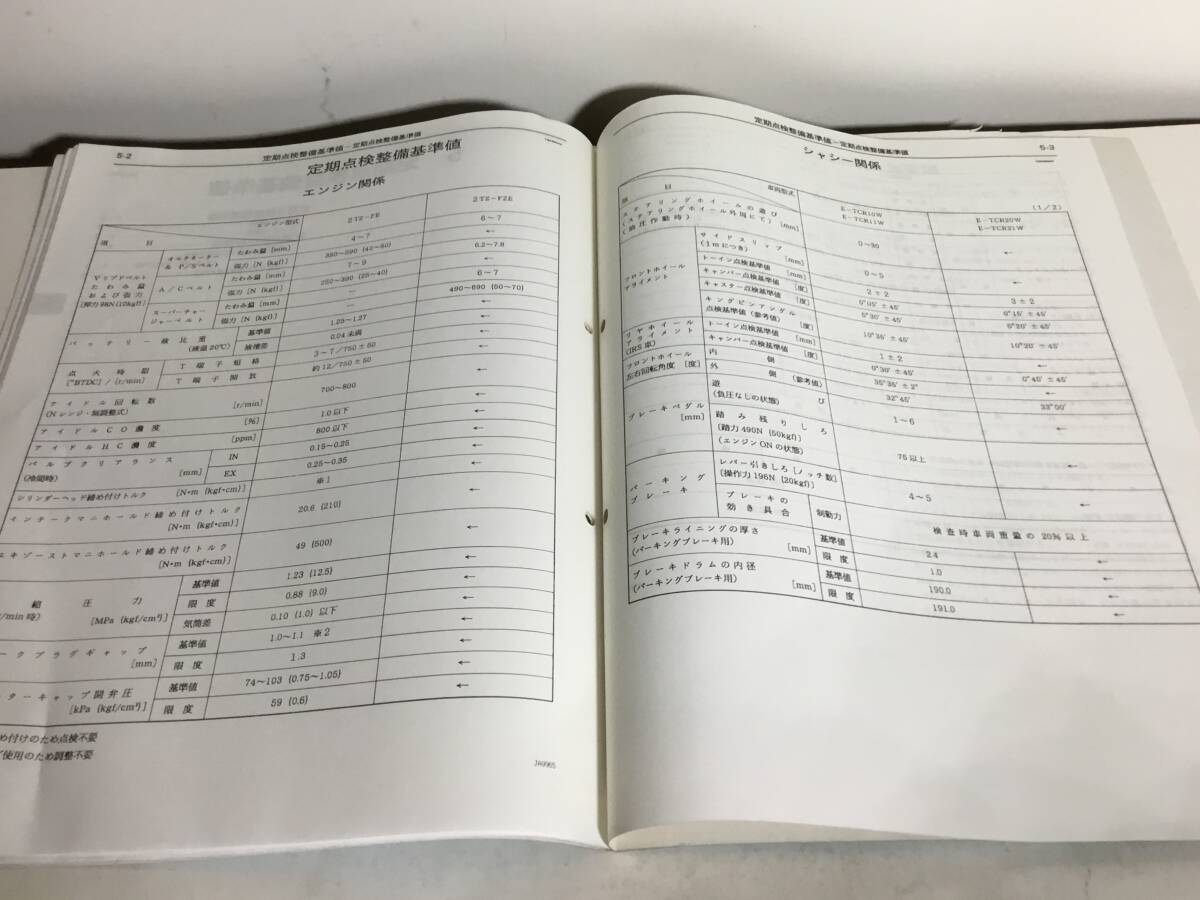 5-2
定期点検整備基準値－定期点検整備基準値
定期点検整備基準値
エンジン関係
項 目 エンジン型式 2TZ－FE 2TZ－FZE
Vリブドベルト
たわみ量
および張力
[押力98N{10kgf}]
オルタネーター
& P/Sベルト
たわみ量 [mm] 4～7 6～7
張力 [N {kgf}] ←
A/Cベルト
たわみ量 [mm] 7～9 6.2～7.8
張力 [N {kgf}] 250～390 {25～40} ←
スーパーチャー
ジャーベルト
たわみ量 [mm] － 6～7
張力 [N {kgf}] － 490～690 {50～70}
バッテリー液比重
(液温20℃)
基準値 1.25～1.27 ←
液槽差 0.04 未満 ←
点火時期
[°BTDC] / {r/min}
T端子短絡 3～7／750±50 ←
T端子開放 約12／750±50 ←
アイドル回転数
(Nレンジ・無調整式) [r/min] 700～800 ←
アイドルCO濃度 [%] 1.0 以下 ←
アイドルHC濃度 [ppm] 800 以下 ←
バルブクリアランス
(冷間時) [mm]
IN 0.15～0.25 ←
EX 0.25～0.35 ←
シリンダーヘッド締め付けトルク [N・m {kgf・cm}] ※1 ←
インテークマニホールド締め付けトルク
[N・m {kgf・cm}] 20.6 {210} ←
エキゾーストマニホールド締め付けトルク
[N・m {kgf・cm}] 49 {500} ←
縮圧力
/min時) [MPa {kgf/cm²}]
基準値 1.23 {12.5} ←
限度 0.88 {9.0} ←
気筒差 0.10 {1.0} 以下 ←
ークプラグギャップ
[mm]
基準値 1.0～1.1 ※2 ←
限度 1.3 ←
ターキャップ開弁圧
[kPa {kgf/cm²}]
基準値 74～103 {0.75～1.05} ←
限度 59 {0.6} ←
め付けのため点検不要
グ使用のため調整不要
JA9965
定期点検整備基準値－定期点検整備基準値
5-3
シャシー関係
(1／2)
項 目 車両型式
E－TCR10W
E－TCR11W
E－TCR20W
E－TCR21W
ステアリングホイールの遊び
(ステアリングホイール外周にて)
(油圧作動時) [mm] 0～30 ←
フロントホイール
アライメント
サイドスリップ
(1mにつき) [mm] 0～5 ←
トーイン点検基準値 [mm] 2±2 3±2
キャンバー点検基準値 [度] 0°05′±45′ 0°15′±45′
キャスター点検基準値 [度] 5°30′±45′ 5°20′±45′
キングピンアングル
点検基準値 (参考値) [度] 10°35′±45′ 10°20′±45′
リヤホイール
アライメント
(IRS車)
トーイン点検基準値 [mm] 1±2 ←
キャンバー点検基準値 [度] 0°30′±45′ 0°45′±45′
フロントホイール
左右回転角度 [度]
内側 35°35′±2° ←
外側 (参考値) 32°45′ 33°00′
ブレーキペダル
[mm]
遊び
(負圧なしの状態) 1～6 ←
踏み残りしろ
[踏力490N {50kgf}]
(エンジンONの状態) 75以上 ←
パーキング
ブレーキ
レバー引きしろ [ノッチ数]
[操作力196N {20kgf}] 4～5 ←
ブレーキの
効き具合
制動力 検査時車両重量の20％以上
ブレーキライニングの厚さ
(パーキングブレーキ用) [mm]
基準値 2.4 ←
限度 1.0 ←
ブレーキドラムの内径
(パーキングブレーキ用) [mm]
基準値 190.0 ←
限度 191.0 ←